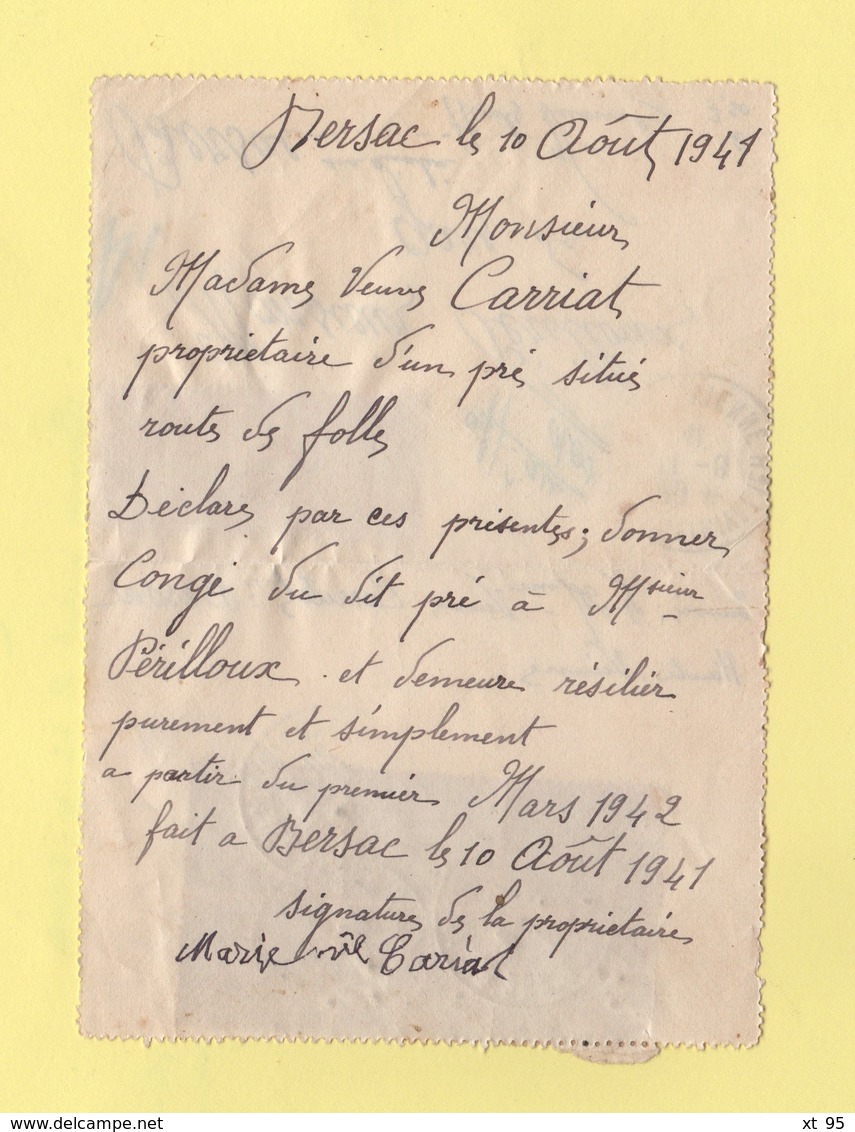 Bersac le 10 Août 1941
Monsieur
Madame Veuve Carriat
propriétaire d'un pré situé
route de folle
Déclare par ces présentes; donner
Congé du dit pré à Msieur
Périlloux et demeure résilier
purement et simplement
a partir du premier Mars 1942
fait a Bersac le 10 Août 1941
signature de la propriétaire
Marie vve Cariat
www.delcampe.net
xt 95